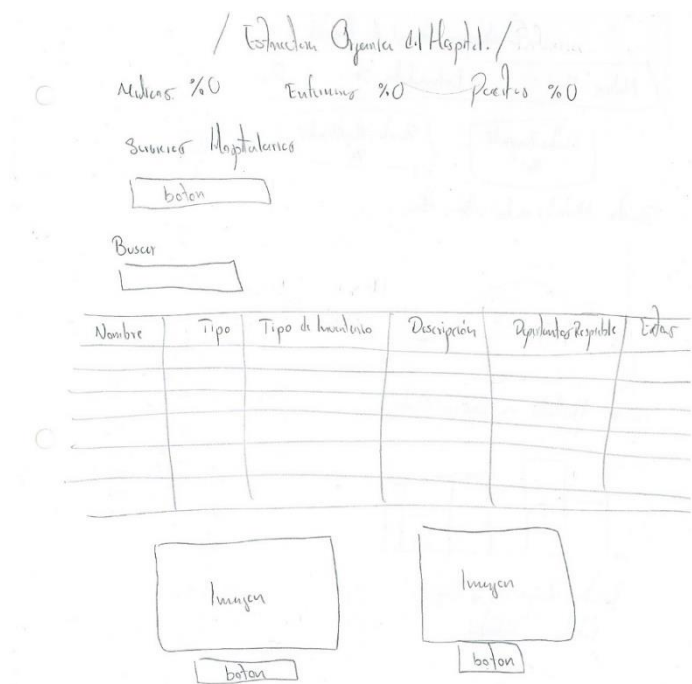 / Estructura Organica del Hospital. /
Medicos %0 Enfermeros %0 Pacientes %0
Servicios Hospitalarios
boton
Buscar
Nombre Tipo Tipo de Inventario Descripción Extras
Imagen Imagen
boton boton